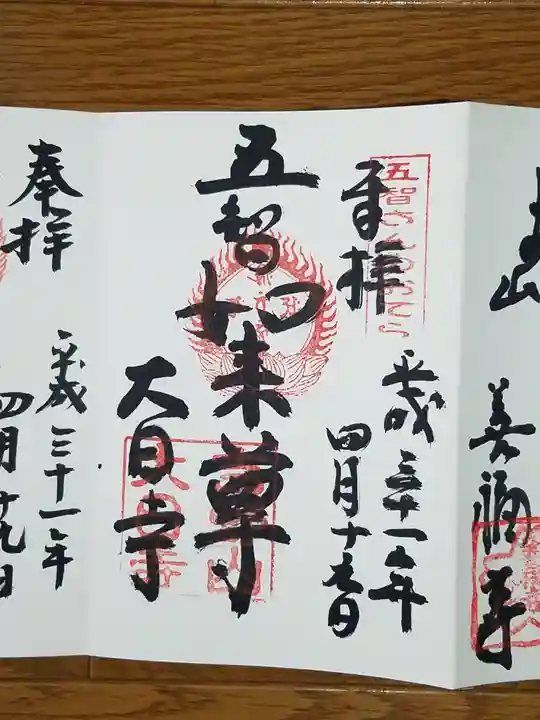 善福寺
五智さんのおてら
奉拝
平成三十一年
四月十九日
五智如来尊
大日寺
奉拝
平成三十一年
四月十九日